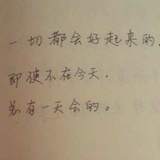 一切都会好起来的，
即使不在今天，
总有一天会的。